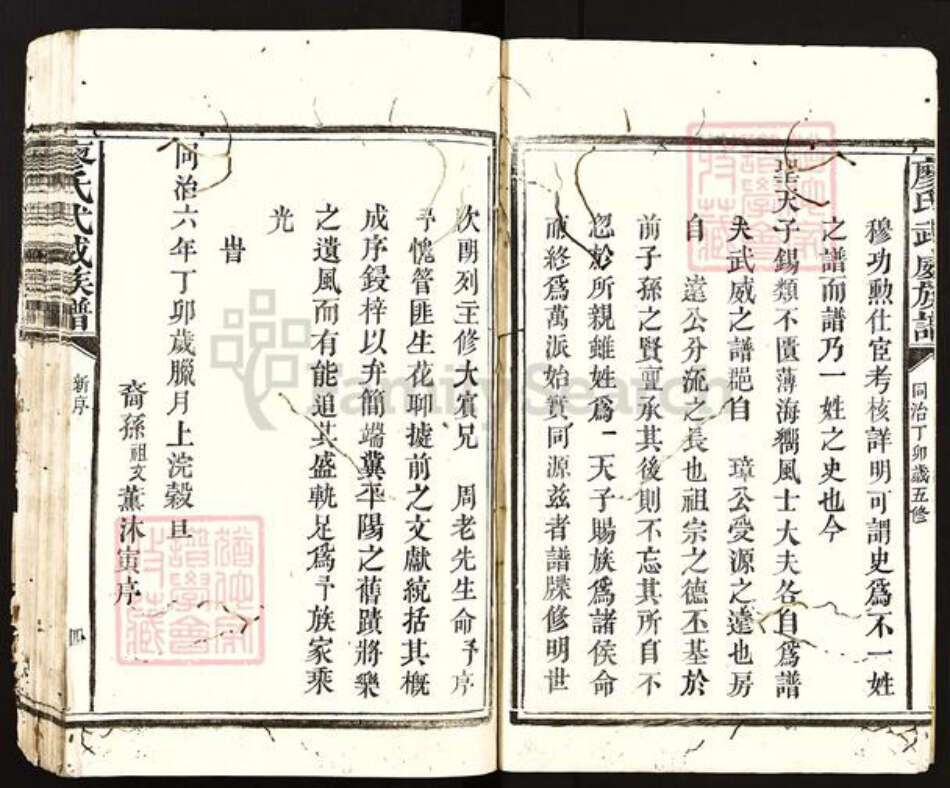 廖氏武威族譜
同治丁卯歲五修
穆功勲仕宦考核詳明可謂史爲不一姓
之譜而譜乃一姓之史也今
聖天子錫類不匱薄海嚮風士大夫各自爲譜
夫武威之譜昉自　璋公受源之遠也房
自　遠公分流之長也祖宗之德丕基於
前子孫之賢亶承其後則不忘其所自不
忍於所親雖姓爲一天子賜族爲諸侯命
而終爲萬派始實同源兹者譜牒修明世
次朗列主修大賓兄　周老先生命予序
予愧管匪生花聊據前之文獻統括其概
成序鋟梓以弁簡端冀平陽之舊蹟將樂
之遺風而有能追其盛軌足爲予族家乘
光
旹
同治六年丁卯歲臘月上浣穀旦
裔孫祖文薰沐寅序
廖氏武威族譜
新序
四
FamilySearch